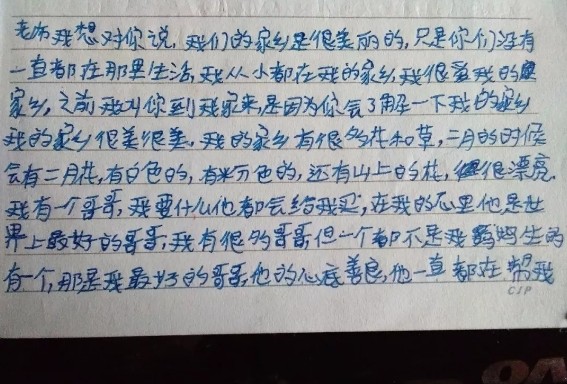 老师我想对你说,我们的家乡是很美丽的,只是你们没有
一直都在那里生活,我从小都在我的家乡,我很爱我的
家乡,之前我叫你到我家来,是因为你会了解一下我的家乡
我的家乡很美很美,我的家乡有很多花和草,二月的时候
会有二月花,有白色的,有米分色的,还有山上的花,很漂亮.
我有一个哥哥,我要什么他都会给我买,在我的心里他是世
界上最好的哥哥,我有很多哥哥但一个都不是我妈妈生的
有一个,那是我最好的哥哥,他的心底善良,他一直都在帮我
CIP